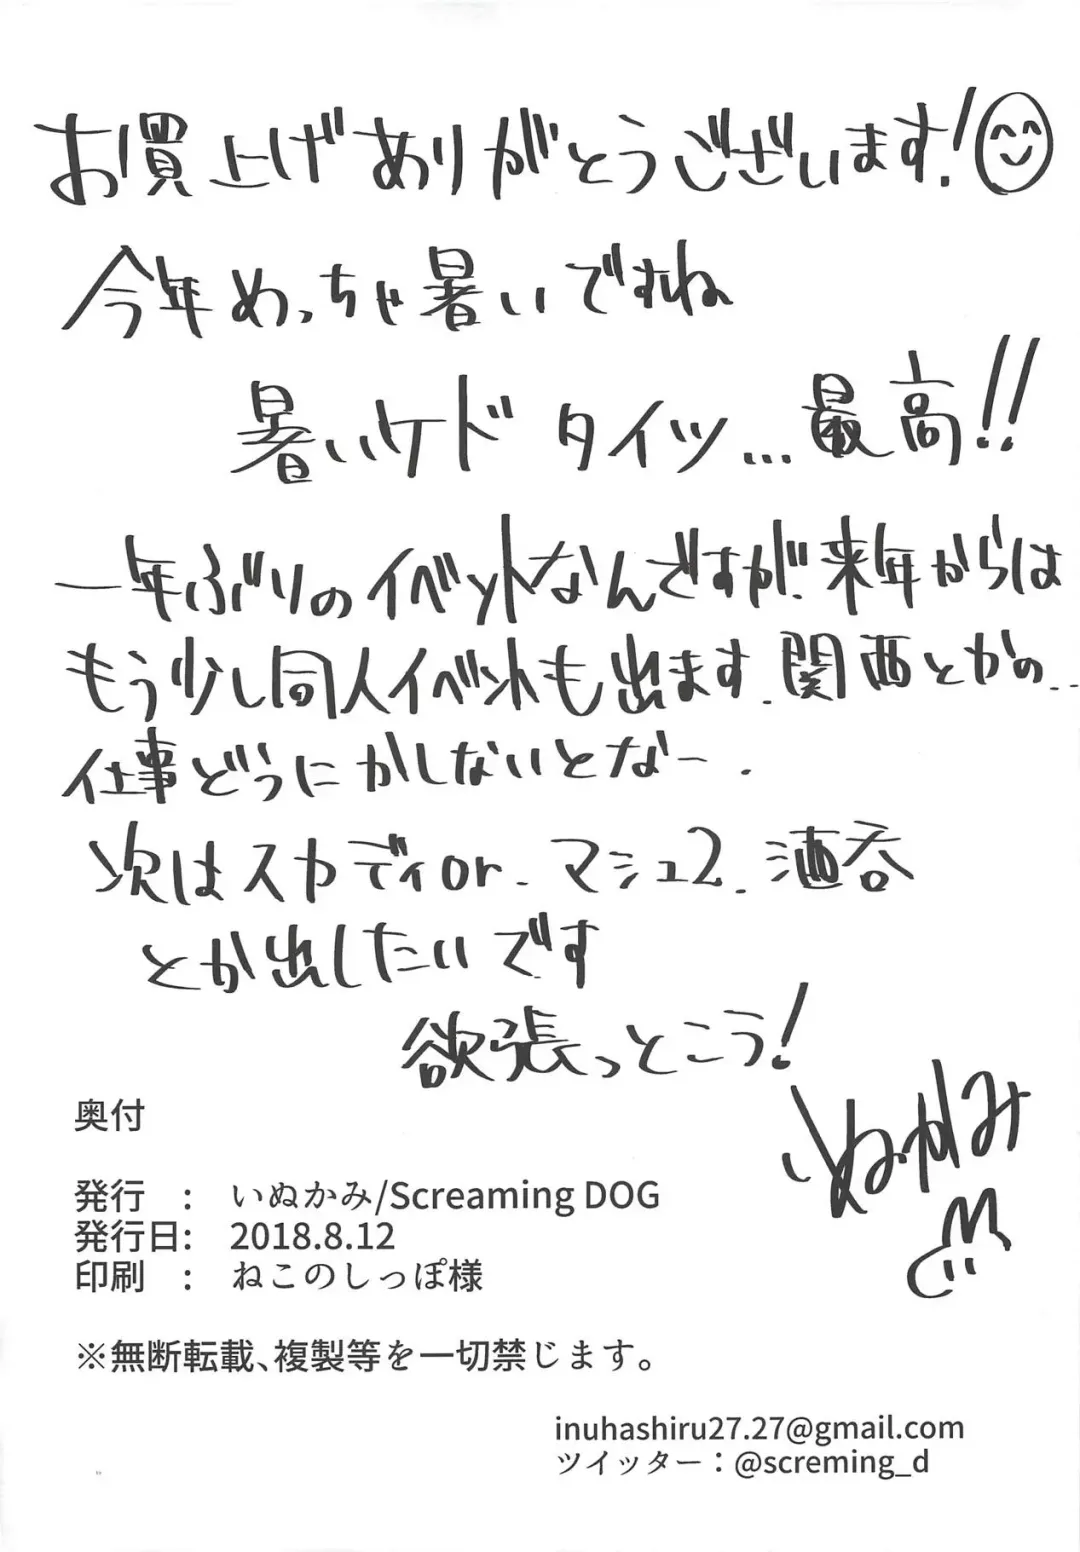 お買上げありがとうございます!
今年めっちゃ暑いですね
暑いケドタイツ...最高!!
一年ぶりのイベットなんですが.来年からは
もう少し同人イベントも出ます.関西とかの...
仕事どうにかしないとなー.
次はスカディor.マシュ2.酒呑
とか出したいです
欲張っとこう!
いぬかみ
奥付
発行 : いぬかみ/Screaming DOG
発行日: 2018.8.12
印刷 : ねこのしっぽ様
※無断転載、複製等を一切禁じます。
inuhashiru27.27@gmail.com
ツイッター：@screming_d